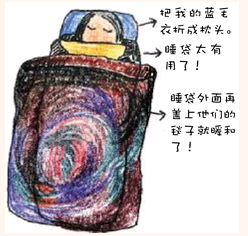 把我的蓝毛
衣折成枕头。
睡袋太有
用了！
睡袋外面再
盖上他们的
毯子就暖和
了！